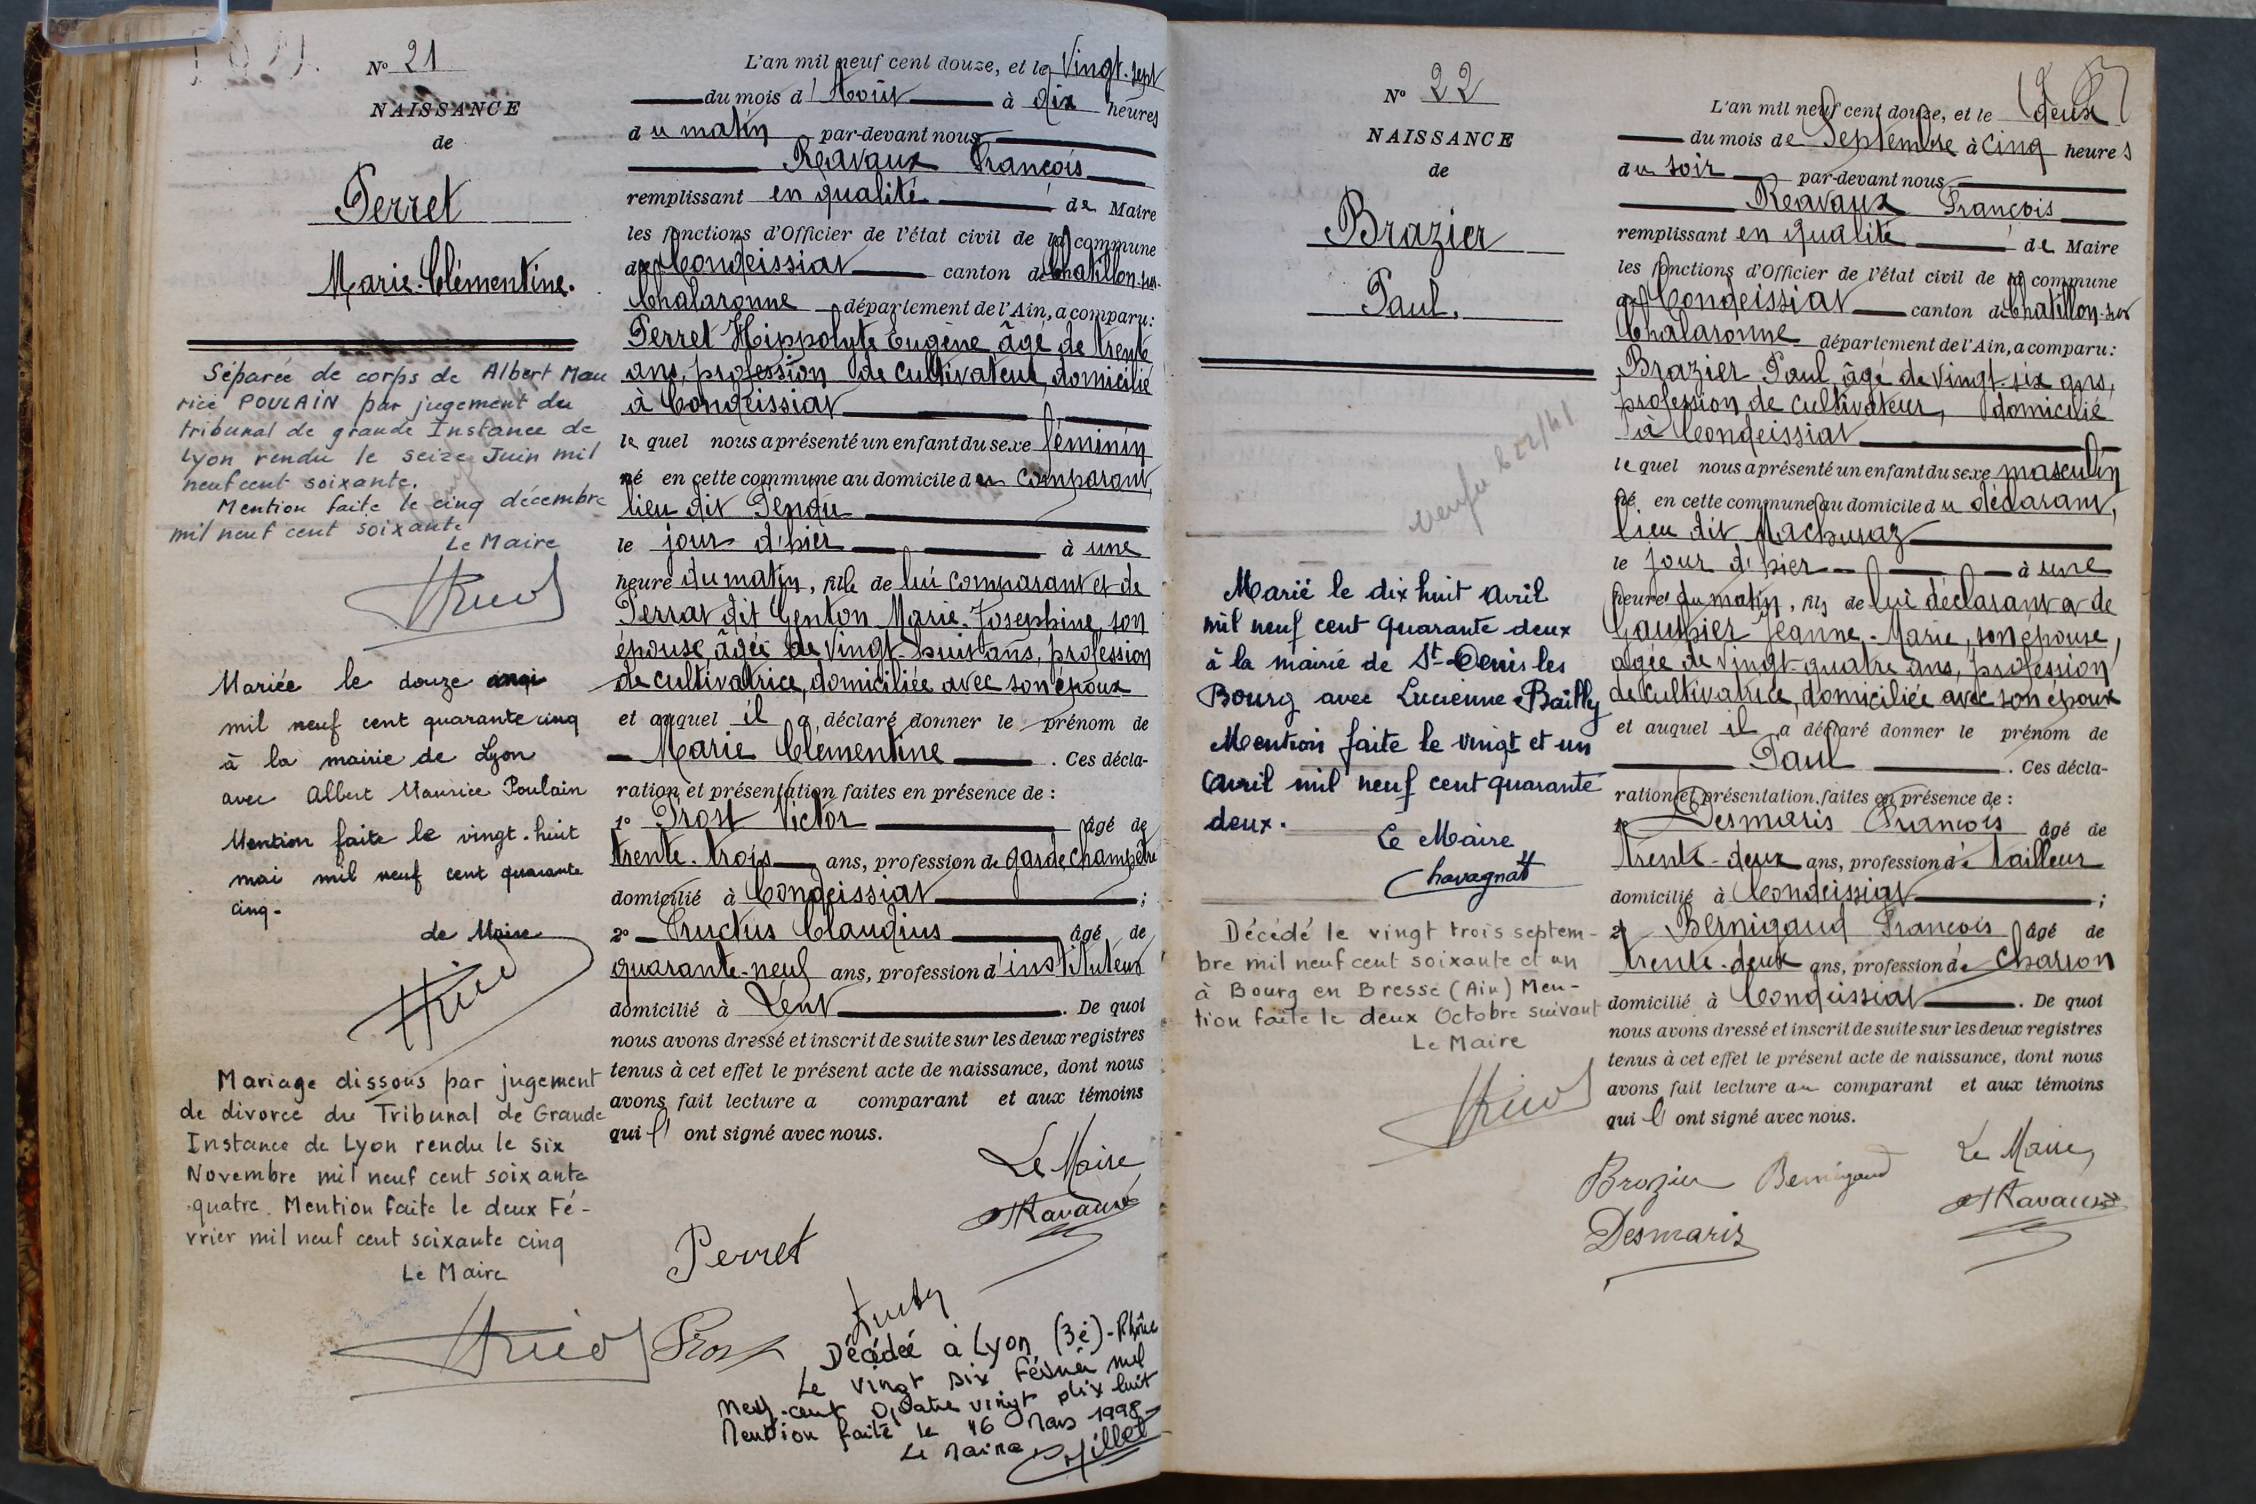 Nº 21
NAISSANCE
de
Perret
Marie-Clémentine.
Séparée de corps de Albert Mau
rice POULAIN par jugement du
tribunal de grande Instance de
Lyon rendu le seize Juin mil
neuf cent soixante.
Mention faite le cinq décembre
mil neuf cent soixante
Le Maire
Mariée le douze mai
mil neuf cent quarante cinq
à la mairie de Lyon
avec Albert Maurice Poulain
Mention faite le vingt-huit
mai mil neuf cent quarante
cinq-
Le Maire
Mariage dissous par jugement
de divorce du Tribunal de Grande
Instance de Lyon rendu le six
Novembre mil neuf cent soixante
quatre. Mention faite le deux Fé-
vrier mil neuf cent soixante cinq
Le Maire
L'an mil neuf cent douze, et le Vingt-sept
du mois d'Août à dix heures
du matin par-devant nous
Ravaux François
remplissant en qualité de Maire
les fonctions d'Officier de l'état civil de la commune
de Condeissiat canton de Chatillon-sur-
Chalaronne département de l'Ain, a comparu:
Perret Hippolyte Eugène âgé de trente
ans, profession de cultivateur, domicilié
à Condeissiat
le quel nous a présenté un enfant du sexe féminin
né en cette commune au domicile du comparant,
lieu dit Pendu
le jour d'hier à une
heure du matin, fille de lui comparant et de
Perrat dit Genton Marie-Josephine, son
épouse âgée de vingt-huit ans, profession
de cultivatrice, domiciliée avec son époux
et auquel il a déclaré donner le prénom de
Marie Clémentine. Ces décla-
ration et présentation faites en présence de :
1º Prost Victor âgé de
trente-trois ans, profession de garde champêtre
domicilié à Condeissiat ;
2º Fructus Claudius âgé de
quarante-neuf ans, profession d'instituteur
domicilié à Lent. De quoi
nous avons dressé et inscrit de suite sur les deux registres
tenus à cet effet le présent acte de naissance, dont nous
avons fait lecture a comparant et aux témoins
qui l' ont signé avec nous.
Le Maire
Ravaux
Perret
Prost
Décédée à Lyon (3è)-Rhône
Le vingt six Février mil
neuf-cent quatre vingt dix huit
Mention faite le 16 Mars 1998-
Le Maire
Nº 22
NAISSANCE
de
Brazier
Paul.
Marié le dix huit avril
mil neuf cent quarante deux
à la mairie de St-Denis les
Bourg avec Lucienne Bailly
Mention faite le vingt et un
avril mil neuf cent quarante
deux.
Le Maire
Chavagnat
Décédé le vingt trois septem-
bre mil neuf cent soixante et un
à Bourg en Bresse (Ain) Men-
tion faite le deux Octobre suivant
Le Maire
L'an mil neuf cent douze, et le deux
du mois de Septembre à cinq heures
du soir par-devant nous
Ravaux François
remplissant en qualité de Maire
les fonctions d'Officier de l'état civil de la commune
de Condeissiat canton de Chatillon-sur
Chalaronne département de l'Ain, a comparu:
Brazier Paul âgé de vingt-six ans,
profession de cultivateur, domicilié
à Condeissiat
le quel nous a présenté un enfant du sexe masculin
né en cette commune au domicile du déclarant,
lieu dit Machuraz
le jour d'hier à une
heure du matin, fils de lui déclarant et de
Gauthier Jeanne-Marie, son épouse,
âgée de vingt-quatre ans, profession
de cultivatrice, domiciliée avec son époux
et auquel il a déclaré donner le prénom de
Paul. Ces décla-
ration et présentation faites en présence de :
1º Desmaris François âgé de
trente-deux ans, profession de tailleur
domicilié à Condeissiat ;
2º Bernigaud François âgé de
trente-deux ans, profession de charron
domicilié à Condeissiat. De quoi
nous avons dressé et inscrit de suite sur les deux registres
tenus à cet effet le présent acte de naissance, dont nous
avons fait lecture au comparant et aux témoins
qui l' ont signé avec nous.
Le Maire,
Brazier Bernigaud
Ravaux
Desmaris